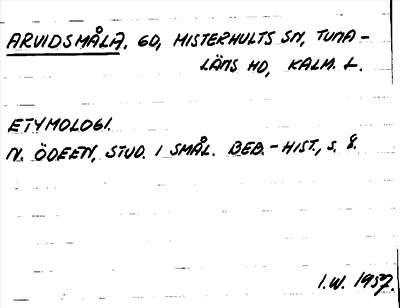 ARVIDSMÅLA. GD, MISTERHULTS SN, TUNA-
LÄNS HD, KALM. L.
ETYMOLOGI.
N. ÖDEEN, STUD. I SMÅL. BEB.-HIST., S. 8.
I.W. 1957.